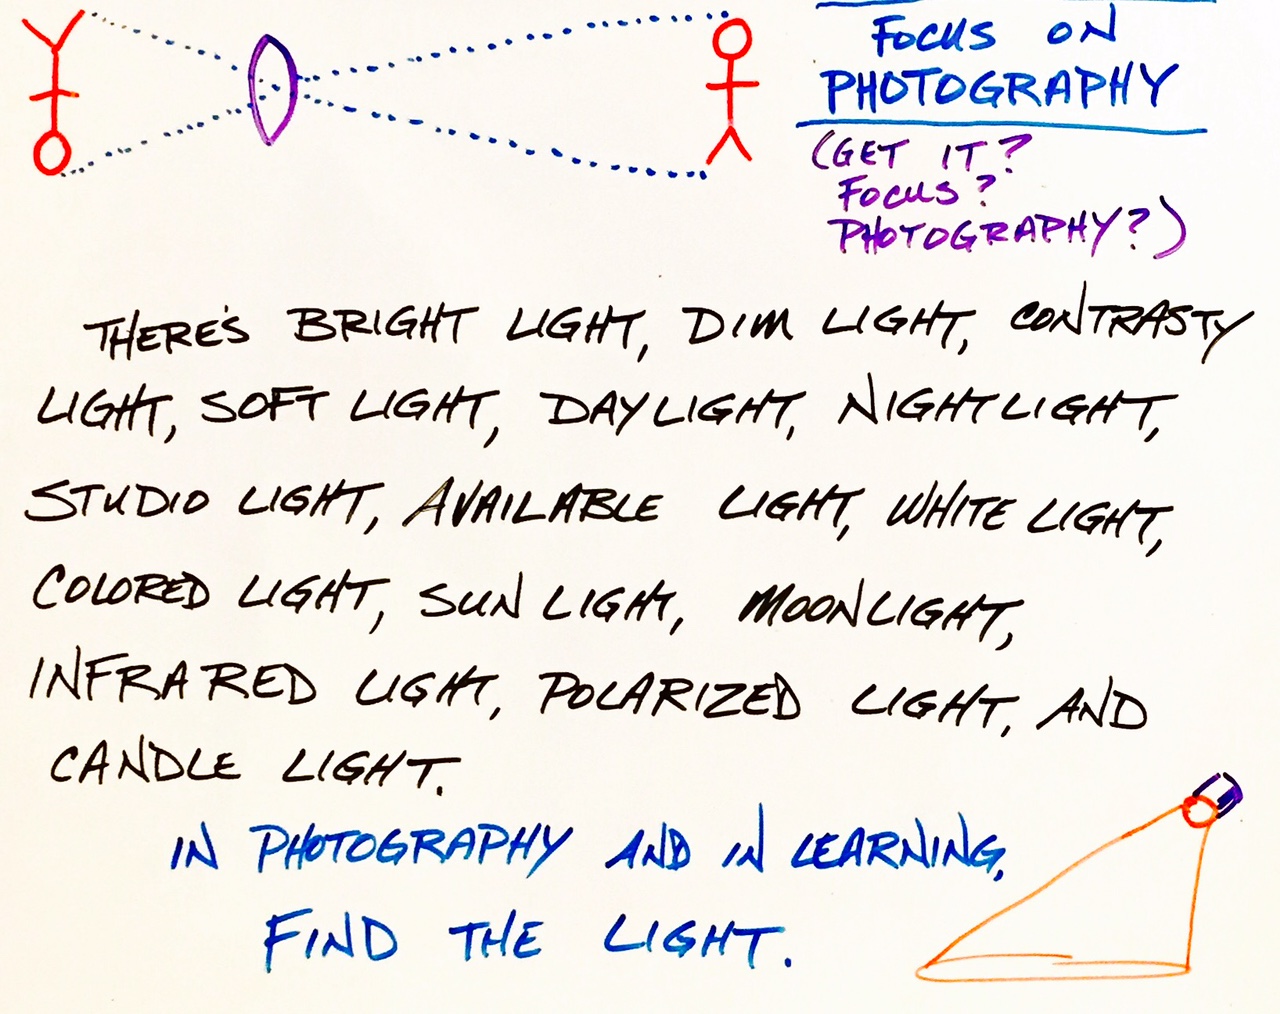 FOCUS ON
PHOTOGRAPHY
(GET IT?
FOCUS?
PHOTOGRAPHY?)
THERE'S BRIGHT LIGHT, DIM LIGHT, CONTRASTY
LIGHT, SOFT LIGHT, DAYLIGHT, NIGHTLIGHT,
STUDIO LIGHT, AVAILABLE LIGHT, WHITE LIGHT,
COLORED LIGHT, SUNLIGHT, MOONLIGHT,
INFRARED LIGHT, POLARIZED LIGHT, AND
CANDLE LIGHT.
IN PHOTOGRAPHY AND IN LEARNING,
FIND THE LIGHT.